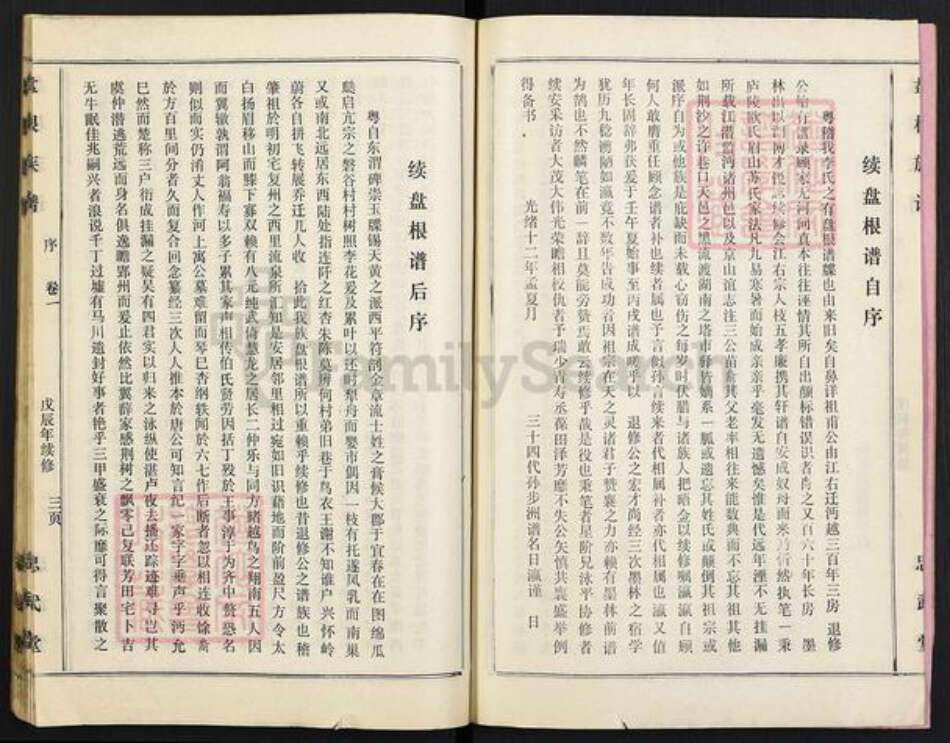 续盘根谱自序
粤稽我李氏之有盘根谱牒也由来旧矣自鼻详祖甫公由江右迁沔越三百年三房 退修
公始有谱录顾家无河间真本往往诬情其所自出颠标错误识者咼之又百六十年长房 墨
林出以淹博才慨念续修会江右宗人枝五孝廉携其轩谱自安成奴母而来乃有然执笔一秉
庐陵欧氏眉山苏氏家法凡九易寒暑而始成亲亲乎毫发无遗憾矣惟是代远年湮不无挂漏
所载江潜监沔诸州邑以及京山谊志注三公苗裔其父老率相往来能数典而不忘其祖其他
如荆沙之许巷口天邑之黑流渡湖南之塔市驿皆嫡系一脈或遗忘其姓氏或颠倒其祖宗或
派序自为或他族是庇缺而未载心窃伤之每岁时伏腊与诸族人把晤佥以续修嘱瀛瀛自顾
何人敢膺重任顾念谱者补也续者属也予言似孙言续来者代相属补者亦代相属也瀛又值
年长固辞弗获爰于壬午夏始事至丙戌谱成嗟乎以 退修公之宏才尚经三次墨林之宿学
犹历九稔谫陋如瀛竟不数年告成功者因祖宗在天之灵诸君子赞襄之力亦赖有墨林前谱
为鹄也不然瞒笔在前一辞且莫能旁赞焉敢云续修乎哉是役也秉笔者星阶兄泳平协修者
续安采访者大茂大伟光荣瞻相校仇者予瑞少青寿丞葆田泽芳靡不失公矢慎共襄盛举例
得备书
光绪十二年孟夏月 三十四代孙步洲谱名日瀛谨 日
续盘根谱后序
粤自东渭碑崇玉牒锡天黄之派西平符剖金章流士姓之膏候大郡于宜春在在图绵瓜
瓞启亢宗之磐谷村村树照李花爰及累叶以还时犁舟而婴市偶因一枝有托遂风乳而南巢
又或南北远居东西陆处指连阡之红杏朱陈莫辨何村弟旧巷于鸟衣王谢不知谁户兴怀岭
蔚各自拼飞转展乔迁几人收 拾此我族盘根谱所以重赖乎续修也昔退修公之谱族也稽
肇祖於明初宅复州之西里流泉所汇知是安居邻里相过宛如旧识藉地而阶前盈尺方令太
白扬眉移山而膝下寡双赖有八元纯武倚慧龙之居长二仲乐与同方睹越鸟之翔南五人因
而翼辙孰谓阿翁福寿以多子累其家声相传伯氏贤劳因括丁殁於王事淳于为齐中赘恐名
则似而实仍淆丈人作河上寓公墓难留而琴巳杳纲轶闻於六七作后断者忽以相连收馀裔
於方百里间分者久而复合回念纂经三次人人推本於唐公可知言纪一家字字垂声乎沔允
巳然而楚称三户衍成挂漏之疑吴有四君实以归来之泳纵使湛卢夜去播迁踪迹难寻岂其
虞仲潜逃荒远而身名俱逸瞻郢州而爰止依然比翼辞家感荆树之飘零己复联芳田宅卜吉
无牛眠佳兆嗣兴者浪说千丁过墟有马川遗封好事者艳乎三甲盛衰之际靡可得言聚散之
盘根族谱
序 卷一
戊辰年续修
三页
忠武堂
FamilySearch